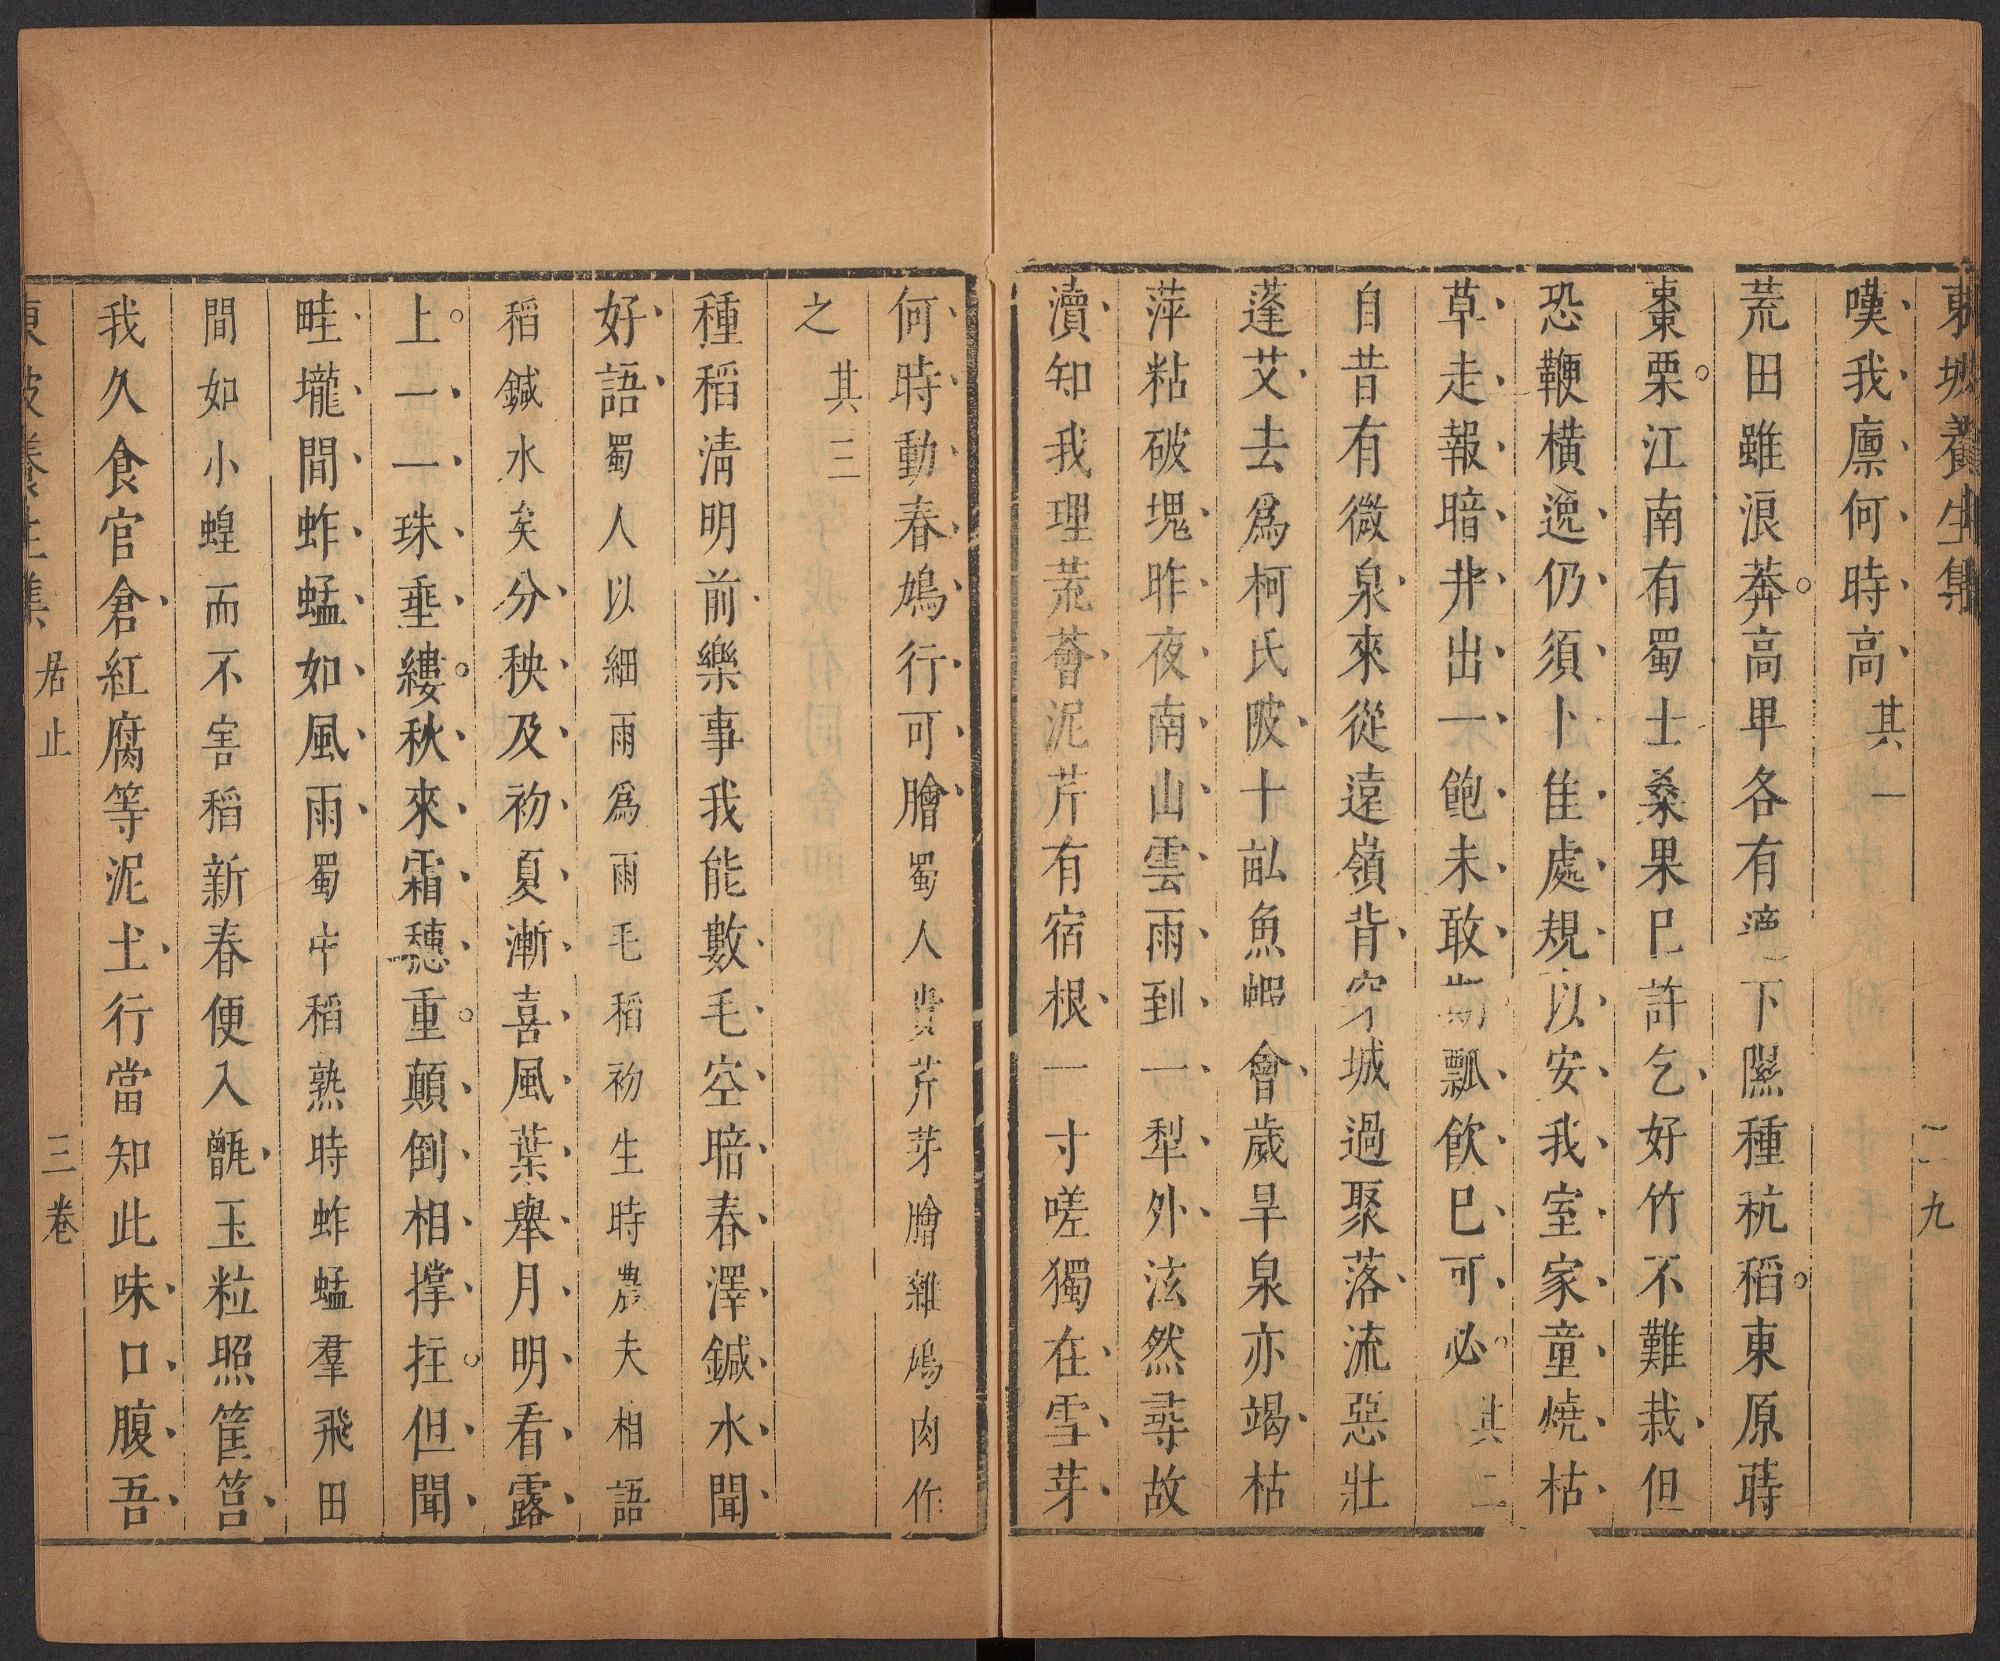 東坡養生集
二九
嘆我廩何時高 其一
荒田雖浪莽高卑各有適下隰種秔稻東原蒔
棗栗江南有蜀士桑果已許乞好竹不難栽但
恐鞭橫逸仍須卜佳處規以安我室家童燒枯
草走報暗井出一飽未敢期瓢飲已可必 其二
自昔有微泉來從遠嶺背穿城過聚落流惡壯
蓬艾去爲柯氏陂十畝魚蝦會歲旱泉亦竭枯
萍粘破塊昨夜南山雲雨到一犁外泫然尋故
瀆知我理荒薈泥芹有宿根一寸嗟獨在雪芽
何時動春鳩行可膾 蜀人貴芹芽膾雜鳩肉作
之 其三
種稻清明前樂事我能數毛空暗春澤鍼水聞
好語 蜀人以細雨爲雨毛稻初生時農夫相語
稻鍼水矣 分秧及初夏漸喜風葉舉月明看露
上一一珠垂縷秋來霜穗重顛倒相撐拄但聞
畦壠間蚱蜢如風雨 蜀中稻熟時蚱蜢羣飛田
間如小蝗而不害稻 新春便入甑玉粒照筐筥
我久食官倉紅腐等泥土行當知此味口腹吾
東坡養生集 居止 三卷